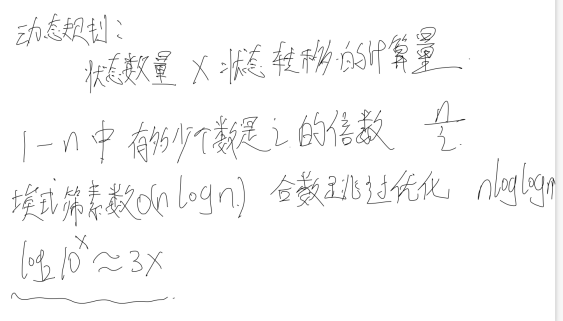 动态规划:
状态数量 × 状态转移的计算量
1-n 中 有多少个数是 i 的倍数 n/i
埃式筛素数 O(n log n) 合数跳过优化 n log log n
log₂ 10^x ≈ 3x